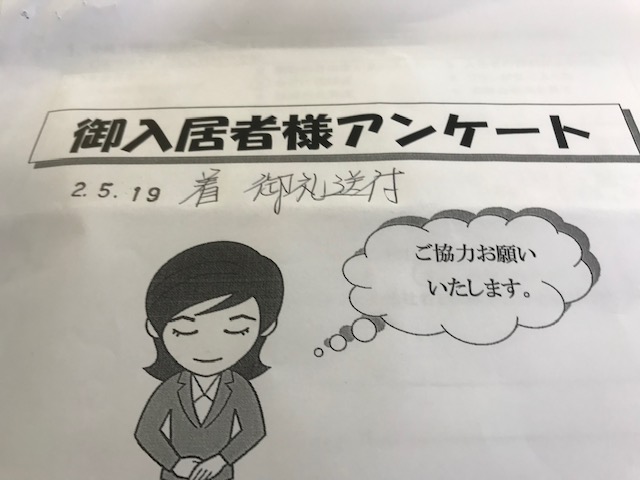 御入居者様アンケート
2.5.19 着 御礼送付
ご協力お願い
いたします。